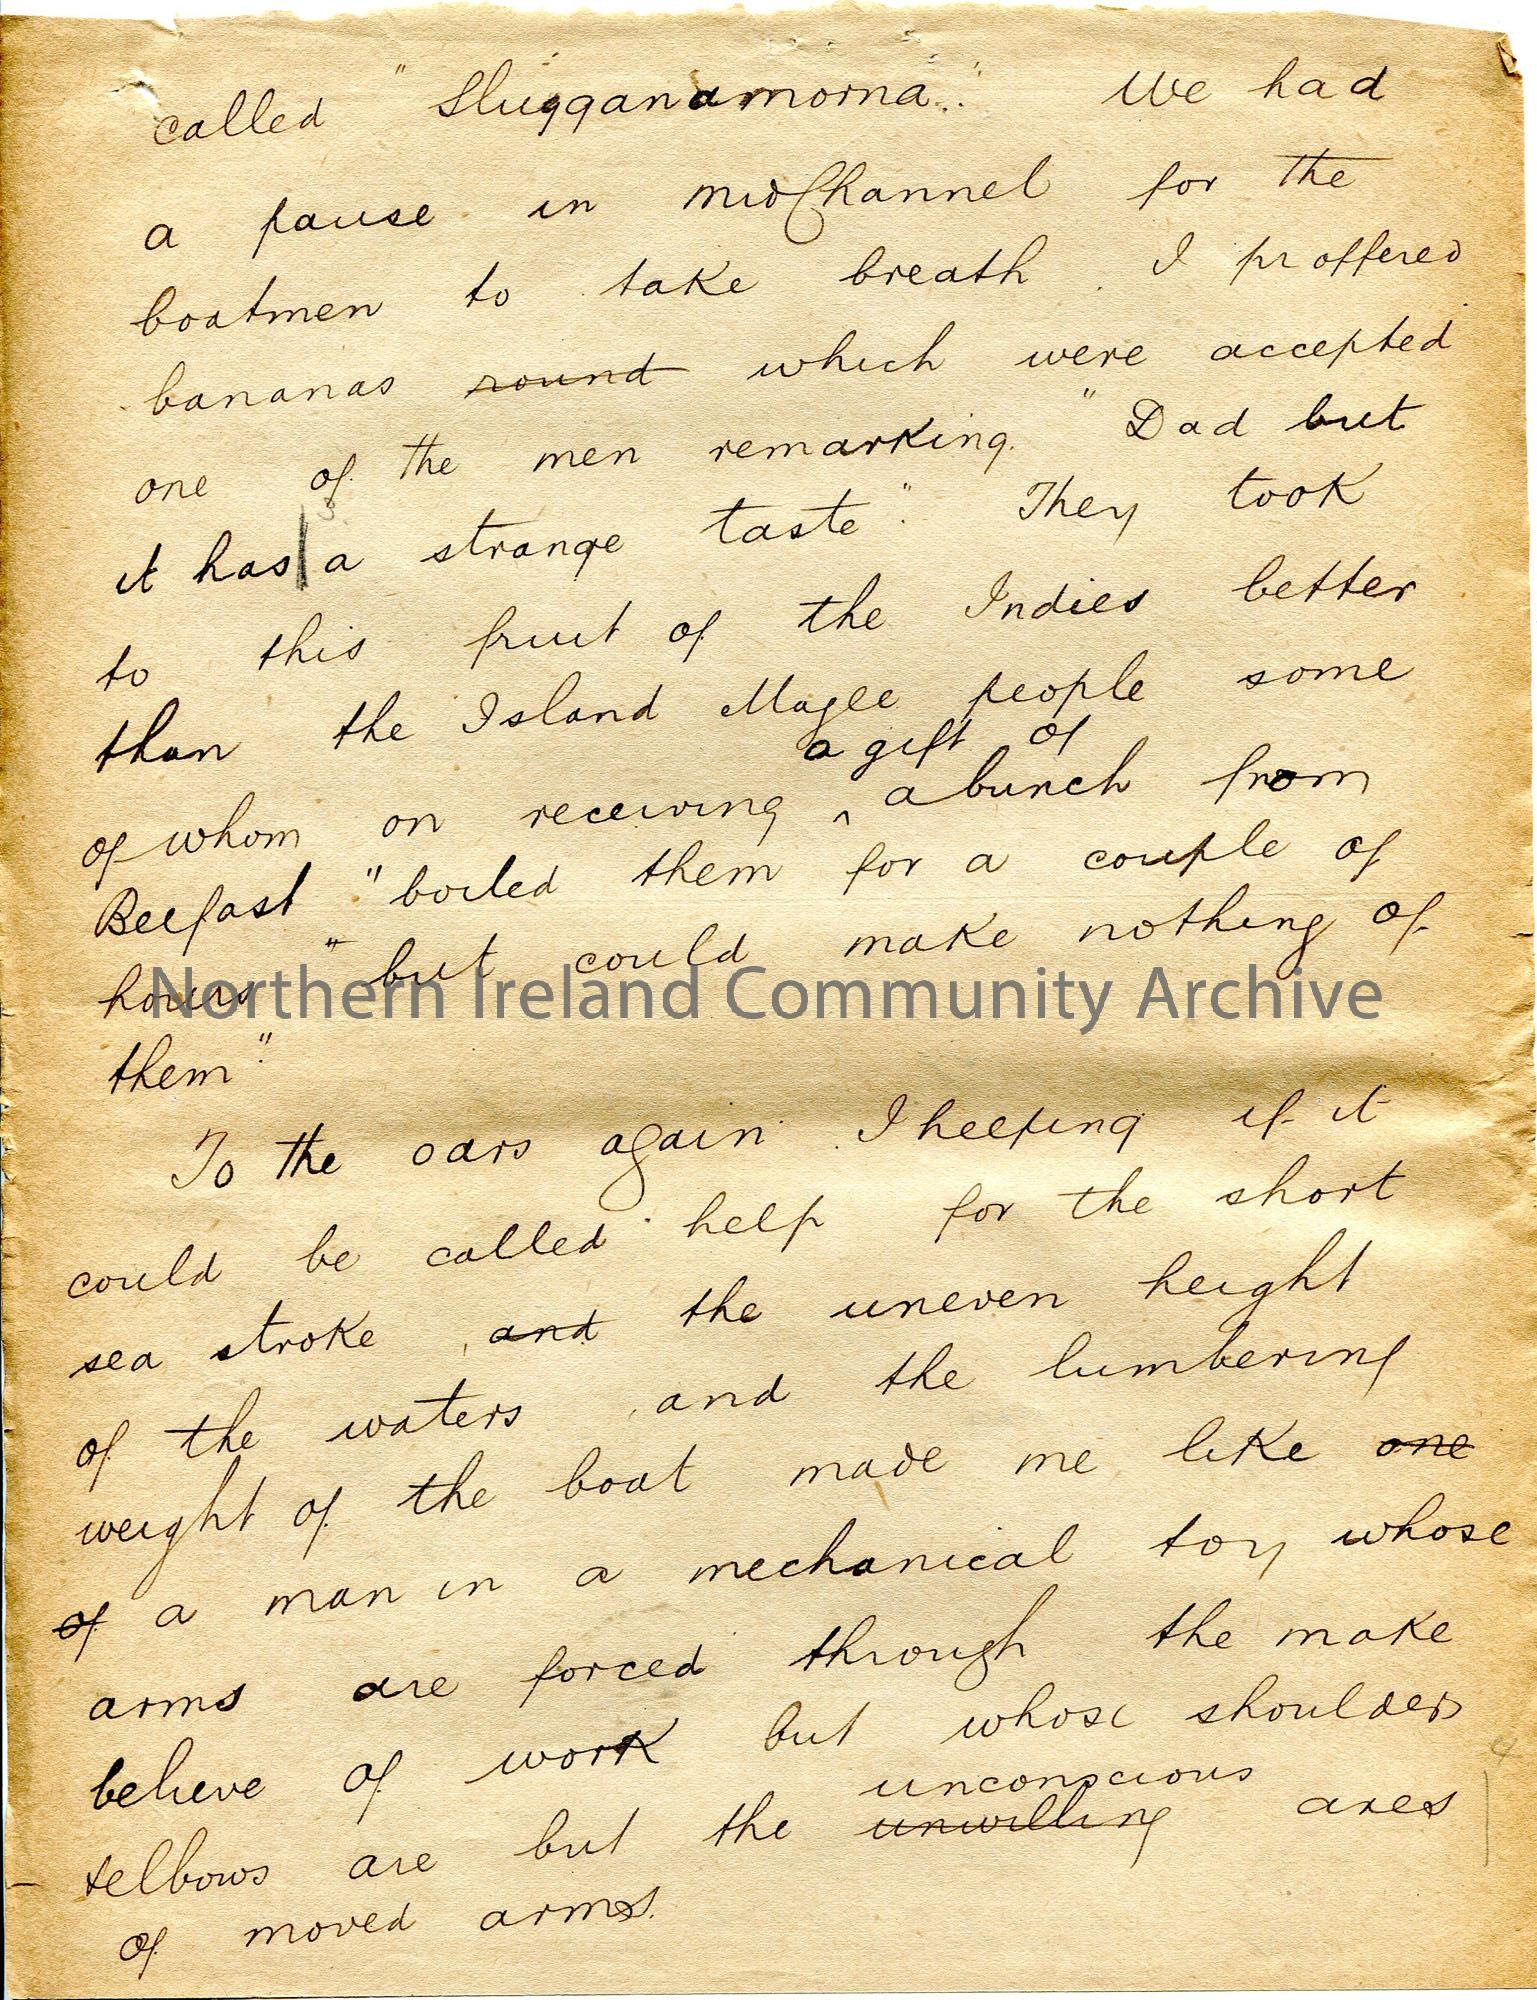 called "Slugganamorna." We had
a pause in midChannel for the
boatmen to take breath. I proffered
bananas ~~round~~ which were accepted
one of the men remarking. "Dad but
it has a strange taste". They took
to this fruit of the Indies better
than the Island Magee people some
a gift of
of whom on receiving ^ a bunch from
Belfast "boiled them for a couple of
hours" but could make nothing of
them".
Northern Ireland Community Archive
To the oars again I helping if it
could be called help for the short
sea stroke, ~~and~~ the uneven height
of the waters, and the lumbering
weight of the boat made me like ~~one~~
~~of~~ a man in a mechanical toy whose
arms are forced through the make
believe of work but whose shoulders
unconscious
+elbows are but the ~~unwilling~~ axes
of moved arms.